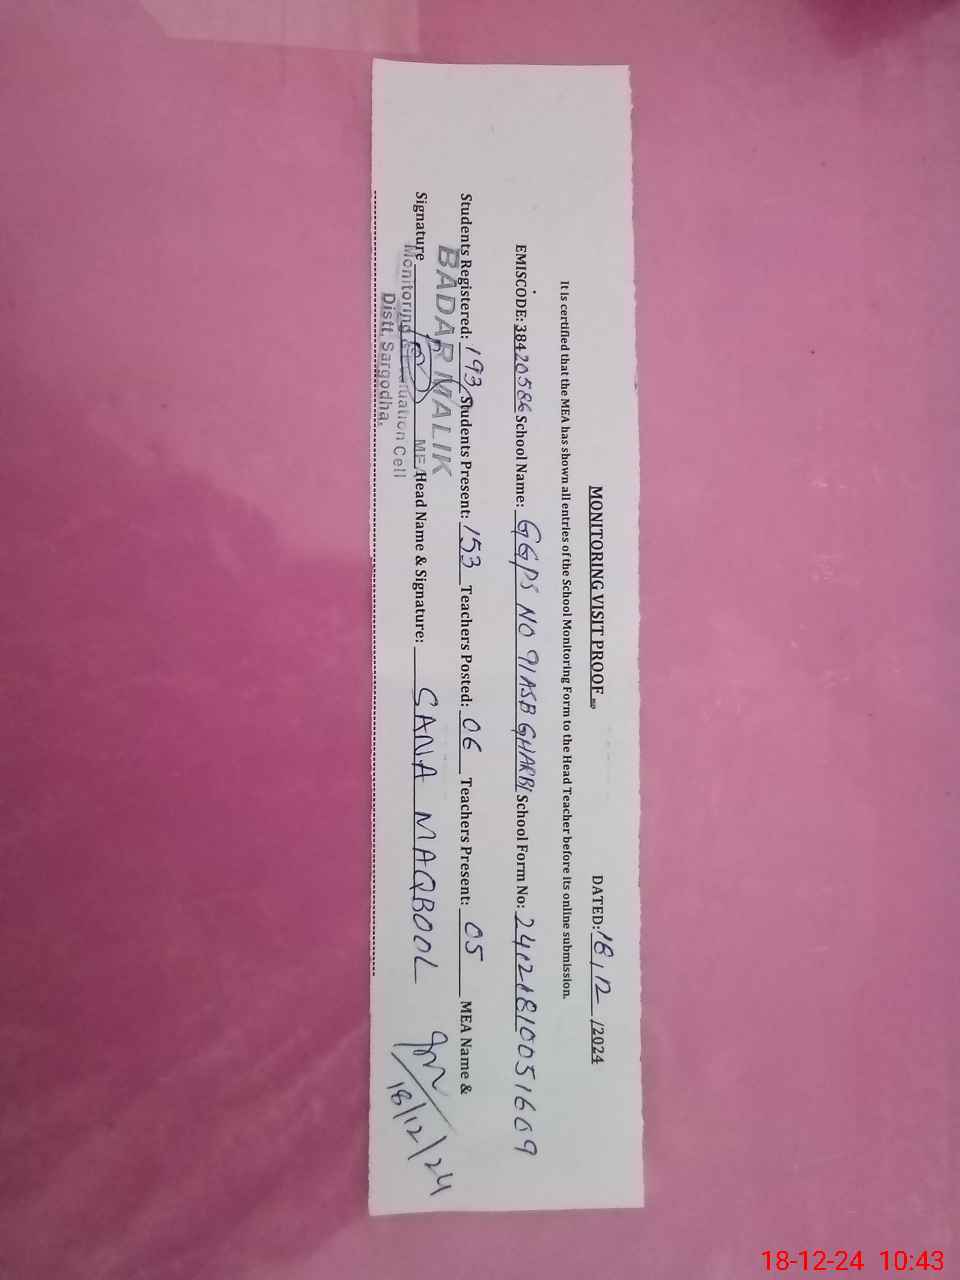 MONITORING VISIT PROOF DATED: 18,12 /2024
It is certified that the MEA has shown all entries of the School Monitoring Form to the Head Teacher before its online submission.
EMISCODE: 38420586 School Name: GGPS NO 91ASB GHARBI School Form No: 24121810051609
Students Registered: 193 Students Present: 153 Teachers Posted: 06 Teachers Present: 05 MEA Name &
Signature Head Name & Signature: SANA MAQBOOL
18/12/24
BADAR MALIK
MEA
Monitoring & Evaluation Cell
Distt. Sargodha.
18-12-24 10:43